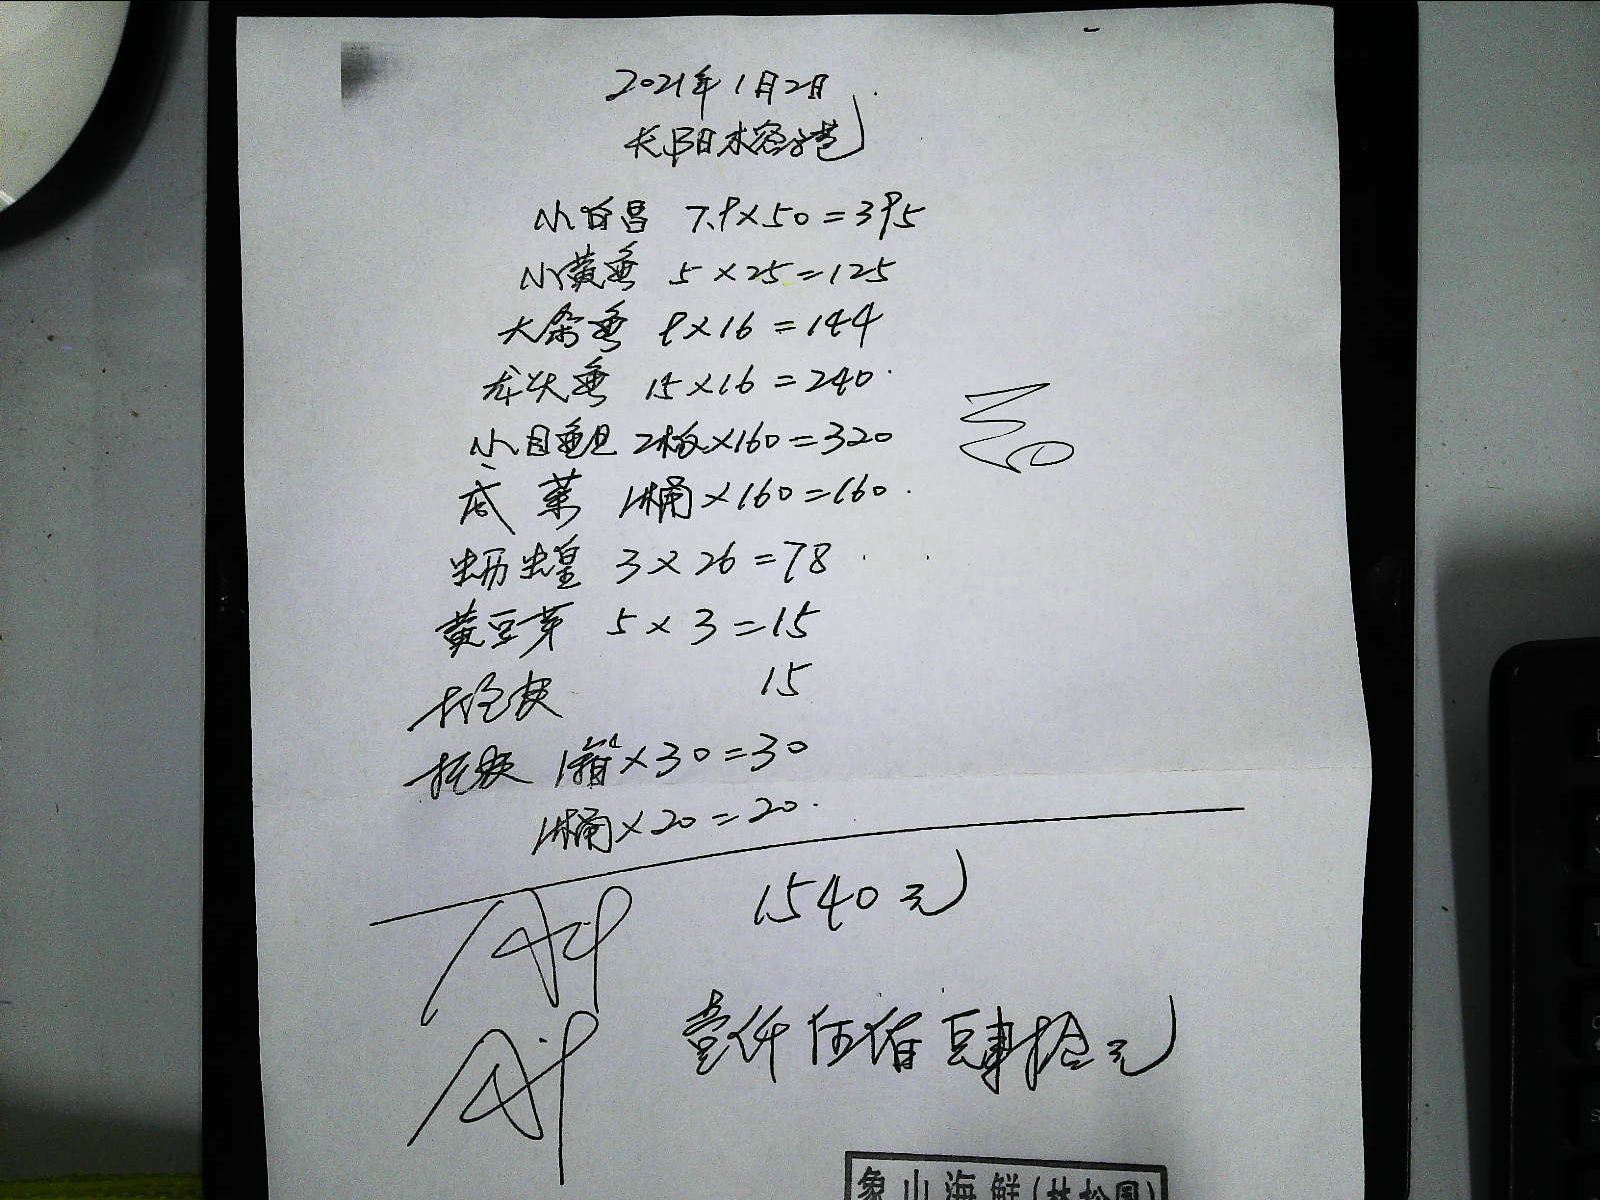 2021年1月2日
长阳水
小白昌 7.9×50=395
小黄鱼 5×25=125
大条鱼 9×16=144
龙头鱼 15×16=240
小目鱼旦 2板×160=320
底菜 1桶×160=160
虫历虫皇 3×26=78
黄豆芽 5×3=15
15
1箱×30=30
1桶×20=20
1540元
壹仟伍佰肆拾元
象山海鲜(林松国)